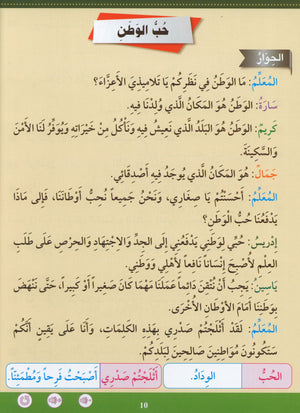 حُبُّ الوَطَنِ
الحِوَارُ
المُعَلِّمُ: مَا الوَطَنُ فِي نَظَرِكُمْ يَا تَلَامِيذِيَ الأَعِزَّاءَ؟
سَارَةُ: الوَطَنُ هُوَ المَكَانُ الَّذِي وُلِدْنَا فِيهِ.
كَرِيمٌ: الوَطَنُ هُوَ البَلَدُ الَّذِي نَعِيشُ فِيهِ وَنَأْكُلُ مِنْ خَيْرَاتِهِ وَيُوَفِّرُ لَنَا الأَمْنَ
وَالسَّكِينَةَ.
جَمَالٌ: هُوَ المَكَانُ الَّذِي يُوجَدُ فِيهِ أَصْدِقَائِي.
المُعَلِّمُ: أَحْسَنْتُمْ يَا صِغَارِي، وَنَحْنُ جَمِيعاً نُحِبُّ أَوْطَانَنَا، فَإِلَى مَاذَا
يَدْفَعُنَا حُبُّ الوَطَنِ؟
إِدْرِيسُ: حُبِّي لِوَطَنِي يَدْفَعُنِي إِلَى الجِدِّ وَالِاجْتِهَادِ وَالحِرْصِ عَلَى طَلَبِ
العِلْمِ لِأُصْبِحَ إِنْسَاناً نَافِعاً لِأَهْلِي وَوَطَنِي.
يَاسِينُ: يَجِبُ أَنْ نُتْقِنَ دَائِماً عَمَلَنَا مَهْمَا كَانَ صَغِيراً أَوْ كَبِيراً، حَتَّى نَنْهَضَ
بِوَطَنِنَا أَمَامَ الأَوْطَانِ الأُخْرَى.
المُعَلِّمُ: لَقَدْ أَثْلَجْتُمْ صَدْرِي بِهَذِهِ الكَلِمَاتِ، وَأَنَا عَلَى يَقِينٍ أَنَّكُمْ
سَتَكُونُونَ مُوَاطِنِينَ صَالِحِينَ لِبَلَدِكُمْ.
الحُبُّ الوِدَادُ. أَثْلَجْتُمْ صَدْرِي أَصْبَحْتُ فَرِحاً وَمُطْمَئِنّاً.
10